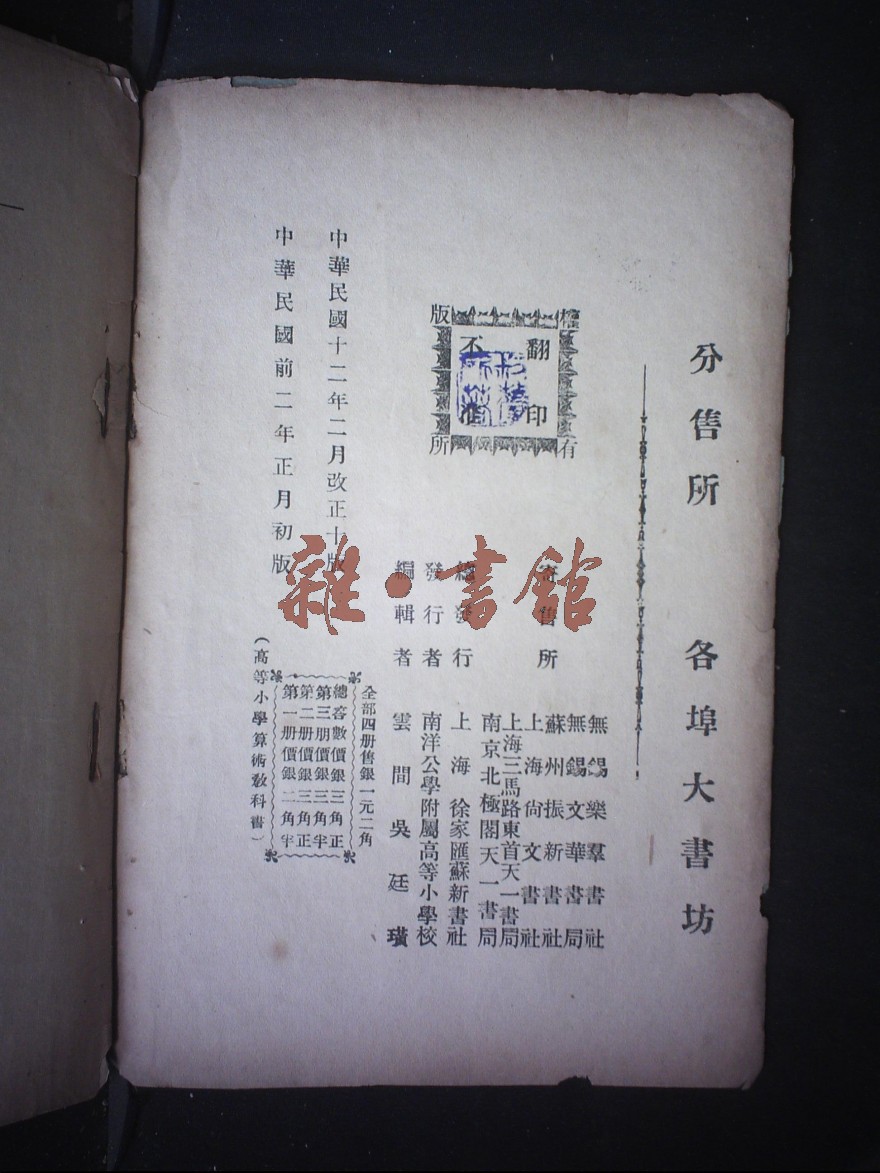 分售所 各埠大書坊
版權所有
翻印
不准
寄售所
無錫樂羣書社
無錫文華書局
蘇州振新書社
上海尚文書社
上海三馬路東首天一書局
南京北極閣天一書局
總發行 上海徐家匯蘇新書社
發行者 南洋公學附屬高等小學校
編輯者 雲間吳廷璜
全部四册售銀一元二角
總答數價銀三角正
第三册價銀三角半
第二册價銀三角正
第一册價銀二角半
(高等小學算術教科書)
中華民國十二年二月改正十版
中華民國前二年正月初版
雜·書館